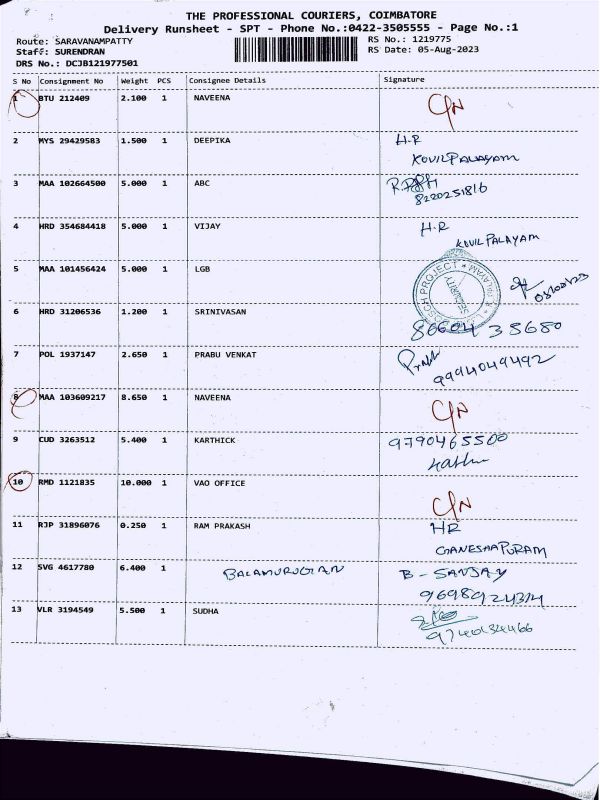 THE PROFESSIONAL COURIERS, COIMBATORE
Delivery Runsheet - SPT - Phone No.:0422-3505555 - Page No.:1
Route: SARAVANAMPATTY RS No.: 1219775
Staff: SURENDRAN RS Date: 05-Aug-2023
DRS No.: DCJB121977501
S No Consignment No Weight PCS Consignee Details Signature
1 BTU 212409 2.100 1 NAVEENA C/N
2 MYS 29429583 1.500 1 DEEPIKA H.R
KOVILPALAYAM
3 MAA 102664500 5.000 1 ABC
8220251816
4 HRD 354684418 5.000 1 VIJAY H.R
KOVILPALAYAM
5 MAA 101456424 5.000 1 LGB
BOSCH PROJECT SECURITY
6 HRD 31206536 1.200 1 SRINIVASAN
8660435680
7 POL 1937147 2.650 1 PRABU VENKAT Prabh
9994049492
8 MAA 103609217 8.650 1 NAVEENA C/N
9 CUD 3263512 5.400 1 KARTHICK 9790465500
10 RMD 1121835 10.000 1 VAO OFFICE C/N
11 RJP 31896076 0.250 1 RAM PRAKASH HR
GANESHAPURAM
12 SVG 4617780 6.400 1 BALAMURUGAN B - SANJAY
9698924314
13 VLR 3194549 5.500 1 SUDHA
9740134466